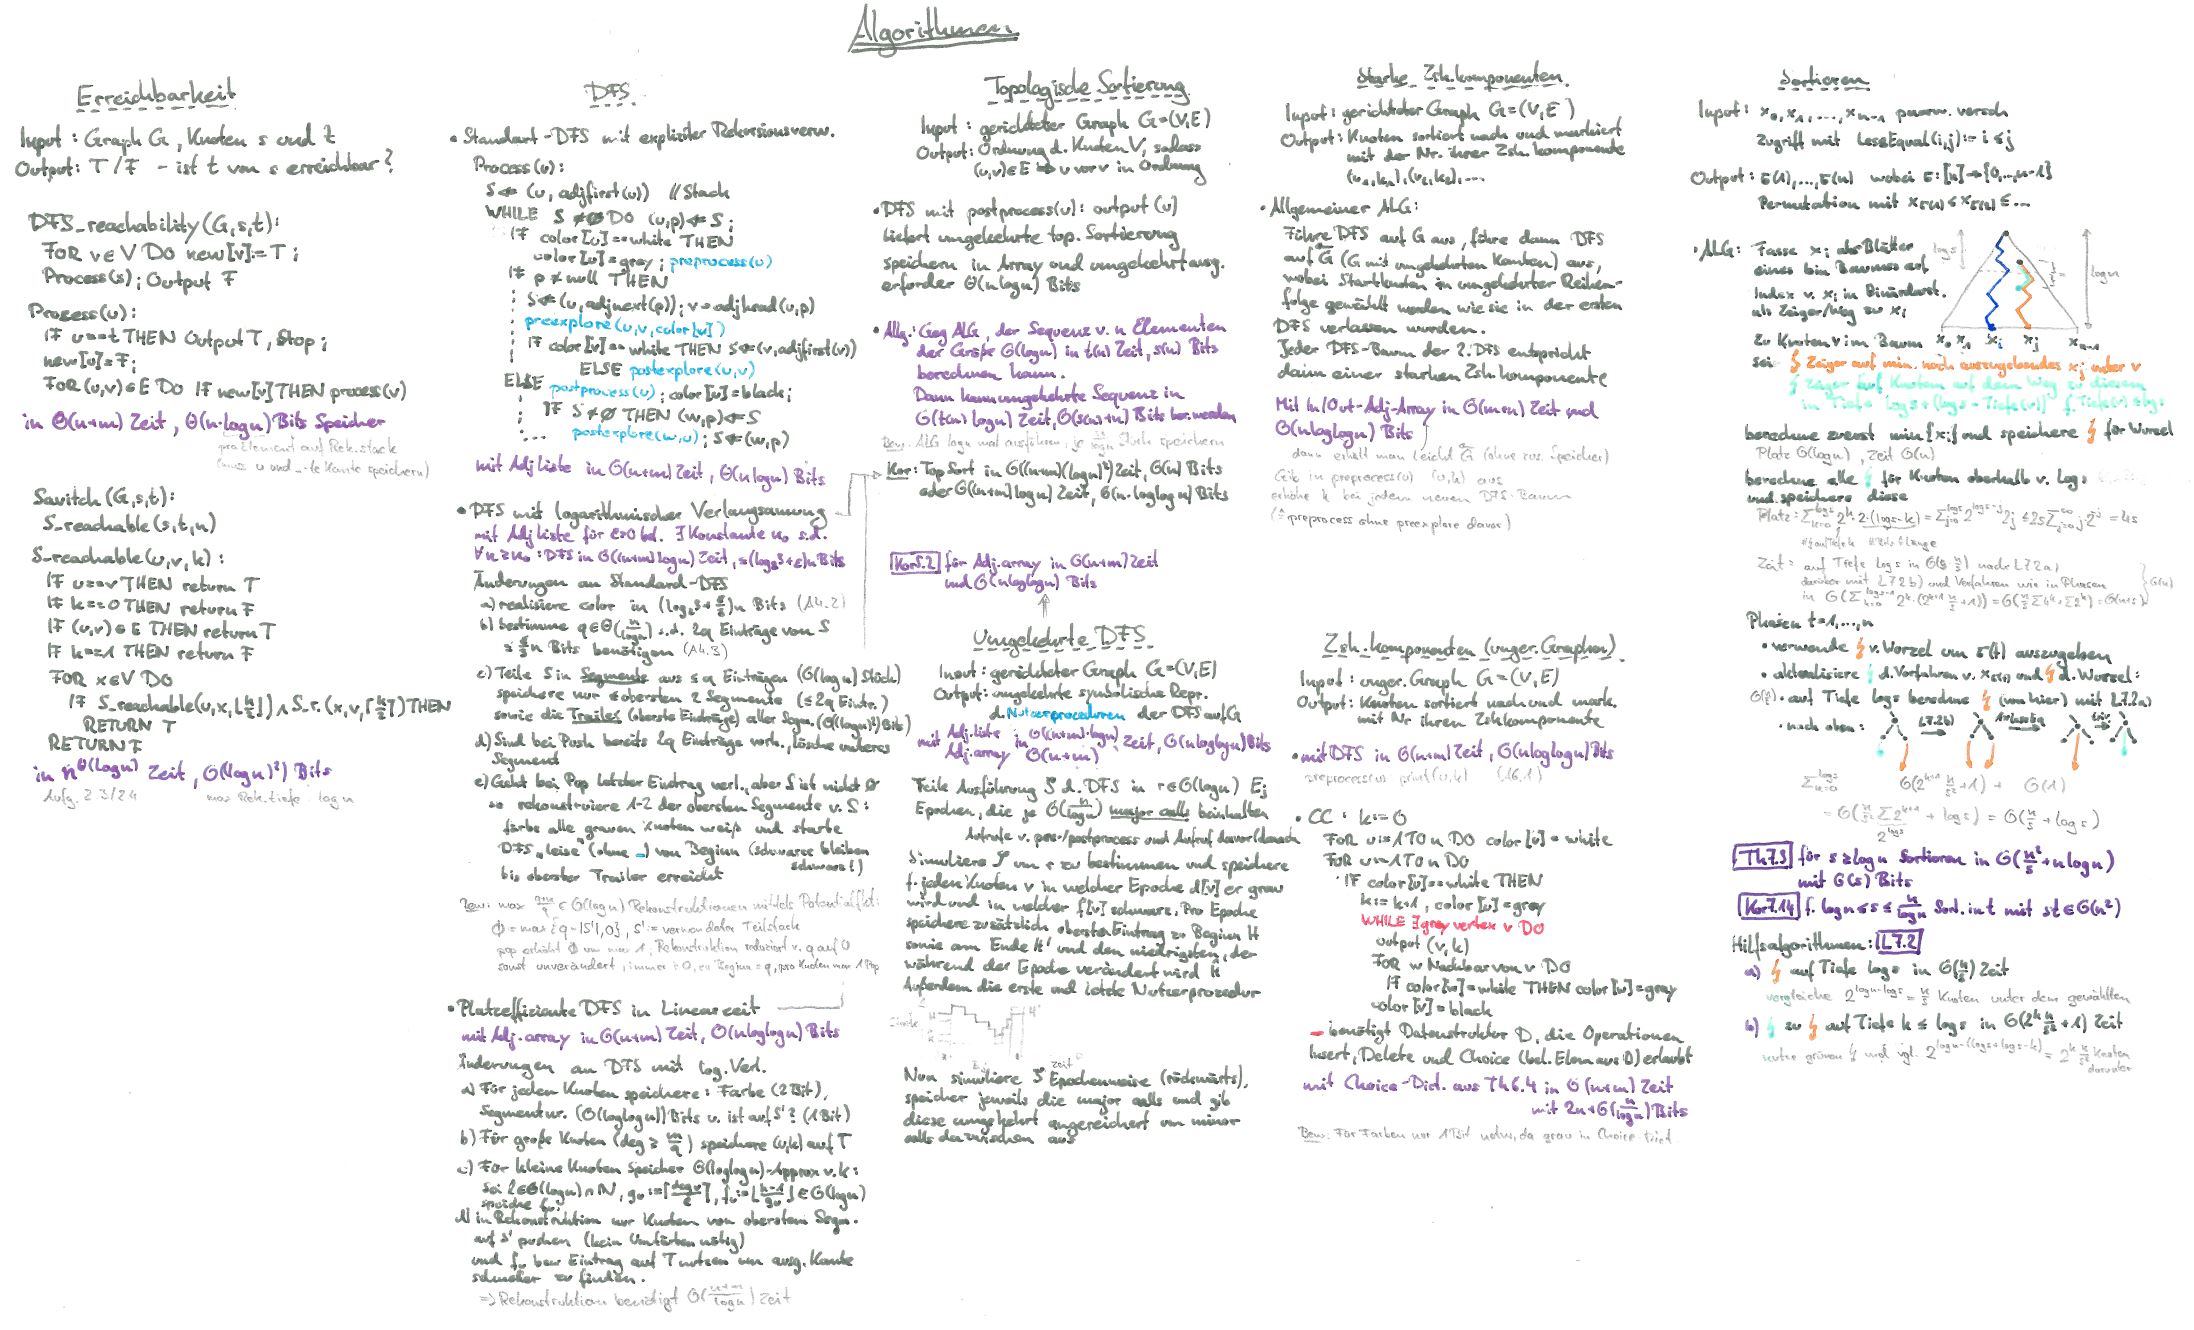 Algorithmen
Erreichbarkeit
Input: Graph G, Knoten s und t
Output: T/F - ist t von s erreichbar?
DFS_reachability(G,s,t):
FOR v∈V DO new[v]:=T;
Process(s); Output F
Process(u):
IF u==t THEN Output T, Stop;
new[u]=F;
FOR (u,v)∈E DO IF new[v] THEN process(v)
in Θ(n+m) Zeit, Θ(n·logn) Bits Speicher
pro Element auf Rek.stack
Savitch(G,s,t):
S_reachable(s,t,n)
S_reachable(u,v,k):
IF u==v THEN return T
IF k==0 THEN return F
IF (u,v)∈E THEN return T
IF k==1 THEN return F
FOR x∈V DO
IF S_reachable(u,x,⌊k/2⌋) ∧ S_r.(x,v,⌈k/2⌉) THEN
RETURN T
RETURN F
in n^Θ(logn) Zeit, Θ((logn)²) Bits
Aufg. 2.3/2.4 max Rek.tiefe logn
DFS
• Standart-DFS mit expliziter Rekursionsverw.
Process(u):
S⇐(u, adjfirst(u)) //Stack
WHILE S≠∅ DO (u,p)⇐S;
IF color[u]==white THEN
color[u]=gray; preprocess(u)
IF p≠null THEN
S⇐(u,adjnext(p)); v=adjhead(u,p)
preexplore(u,v,color[v])
IF color[v]==white THEN S⇐(v,adjfirst(v))
ELSE postexplore(u,v)
ELSE postprocess(u); color[u]=black;
IF S≠∅ THEN (w,p)⇐S
postexplore(w,u); S⇐(w,p)
mit Adjliste in Θ(n+m) Zeit, Θ(nlogn) Bits
• DFS mit logarithmischer Verlangsamung
mit Adjliste für ε>0 bel. ∃ Konstante n₀ s.d.
∀n≥n₀: DFS in Θ((n+m)logn) Zeit, ≤(log₂3+ε)n Bits
Änderungen an Standard-DFS
a) realisiere color in (log₂3+ε/2)n Bits (A4.2)
b) bestimme q∈Θ(n/logn) s.d. 2q Einträge von S
≤ ε/2 n Bits benötigen (A4.3)
c) Teile S in Segmente aus ≤q Einträgen (Θ(logn) Stück)
speichere nur ≤ obersten 2 Segmente (≤2q Eintr.)
sowie die Trailer (oberste Einträge) aller Segm. (Θ((logn)²) Bit)
d) Sind bei Push bereits 2q Einträge vorh., lösche unteres
Segment
e) Geht bei Pop letzter Eintrag verl., aber S ist nicht ∅
⇒ rekonstruiere 1-2 der obersten Segmente v. S:
färbe alle grauen Knoten weiß und starte
DFS „leise" (ohne _) von Beginn (schwarze bleiben
bis oberster Trailer erreicht schwarz!)
Bew: max ∈ Θ(logn) Rekonstruktionen mittels Potentialfkt:
Φ = max{q-|S'|,0}, S' := vorhandener Teilstack
pop erhöht Φ um max 1, Rekonstruktion reduziert v. q auf 0
sonst unverändert, immer ≥0, zu Beginn = q, pro Knoten max 1 Pop
• Platzeffiziente DFS in Linearzeit
mit Adj.array in Θ(n+m) Zeit, O(nloglogn) Bits
Änderungen an DFS mit log. Verl.
a) Für jeden Knoten speichere: Farbe (2 Bit),
Segmentnr. (Θ(loglogn)) Bits u. ist auf S'? (1 Bit)
b) Für große Knoten (deg ≥ m/q) speichere (u,k) auf T
c) Für kleine Knoten Speicher Θ(loglogn)-Approx v. k:
Sei l∈Θ(logn)∩ℕ, gᵤ:=⌈deg u/l⌉, fᵤ:=⌊(k-1)/gᵤ⌋∈Θ(logn)
speiche fᵤ
d) in Rekonstruktion nur Knoten von oberstem Segm.
auf S' pushen (kein Umfärben nötig)
und fᵤ bzw Eintrag auf T nutzen um ausg. Kante
schneller zu finden.
=> Rekonstruktion benötigt Θ((n+m)/logn) Zeit
Topologische Sortierung
Input: gerichteter Graph G=(V,E)
Output: Ordnung d. Knoten V, sodass
(u,v)∈E ⇒ u vor v in Ordnung
• DFS mit postprocess(u): output(u)
liefert umgekehrte top. Sortierung
speichern in Array und umgekehrt ausg.
erforder Θ(nlogn) Bits
• Allg.: Geg ALG, der Sequenz v. n Elementen
der Größe Θ(logn) in t(n) Zeit, s(n) Bits
berechnen kann.
Dann kann umgekehrte Sequenz in
Θ(t(n) logn) Zeit, Θ(s(n)+n) Bits ber. werden
Bew: ALG logn mal ausführen, je n/logn Stück speichern
Kor: TopSort in Θ((n+m)(logn)²) Zeit, Θ(n) Bits
oder Θ((n+m)logn) Zeit, Θ(n·loglogn) Bits
Kor5.2 für Adj.array in Θ(n+m) Zeit
und Θ(nloglogn) Bits
Umgekehrte DFS
Input: gerichteter Graph G=(V,E)
Output: umgekehrte symbolische Repr.
d. Nutzerproceduren der DFS auf G
mit Adj.liste in Θ((n+m)·logn) Zeit, Θ(nloglogn) Bits
Adj.array Θ(n+m)
Teile Ausführung S d. DFS in r∈Θ(logn) Ej
Epochen, die je Θ(n/logn) major calls beinhalten
Aufrufe v. pre-/postprocess und Aufruf davor/danach
Simuliere S um r zu bestimmen und speichere
f. jeden Knoten v in welcher Epoche d[v] er grau
wird und in welcher f[v] schwarz. Pro Epoche
speichere zusätzlich obersten Eintrag zu Beginn H
sowie am Ende H' und den niedrigsten, der
während der Epoche verändert wird Ĥ
Außerdem die erste und letzte Nutzerprozedur
Zeit
Nun simuliere S Epochenweise (rückwärts),
speicher jeweils die major calls und gib
diese umgekehrt angereichert um minor
calls dazwischen aus
Starke Zsh.komponenten
Input: gerichteter Graph G=(V,E)
Output: Knoten sortiert nach und markiert
mit der Nr. ihrer Zsh.komponente
(v₁,k₁),(v₂,k₂),...
• Allgemeiner ALG:
Führe DFS auf G aus, führe dann DFS
auf G (G mit umgedrehten Kanten) aus,
wobei Startknoten in umgekehrter Reihen-
folge gewählt werden wie sie in der ersten
DFS verlassen wurden.
Jeder DFS-Baum der 2. DFS entspricht
dann einer starken Zsh.komponente
Mit In/Out-Adj-Array in Θ(n+m) Zeit und
Θ(nloglogn) Bits
dann erhält man leicht G (ohne zus. Speicher)
Gib in preprocess(u) (u,k) aus
erhöhe k bei jedem neuen DFS-Baum
(≙ preprocess ohne preexplore davor)
Zsh.komponenten (unger. Graphen)
Input: unger. Graph G=(V,E)
Output: Knoten sortiert nach und mark.
mit Nr ihren Zshkomponente
• mit DFS in Θ(n+m) Zeit, Θ(nloglogn) Bits
preprocess(u) print(u,k) (16.1)
• CC: k:=0
FOR u:=1 TO n DO color[u]=white
FOR u:=1 TO n DO
IF color[u]==white THEN
k:=k+1, color[u]=gray
WHILE ∃ gray vertex v DO
output (v,k)
FOR w Nachbar von v DO
IF color[w]=white THEN color[w]=gray
color[v]=black
- benötigt Datenstruktur D, die Operationen
Insert, Delete und Choice (bel. Elem aus D) erlaubt
mit Choice-Dict. aus Th6.4 in Θ(n+m) Zeit
mit 2n+Θ(n/logn) Bits
Bew: Für Farben nur 1 Bit notw, da grau in Choice-Dict
Sortieren
Input: x₀,x₁,...,xₙ₋₁ paarw. versch
Zugriff mit LessEqual(i,j):= i≤j
Output: σ(1),...,σ(n) wobei σ:[n]→{0,...,n-1}
Permutation mit xσ(1) ≤ xσ(2) ≤...
• ALG: Fasse xᵢ als Blätter
eines bin Baumes auf
Index v. xᵢ in Binärdarst.
als Zeiger/Weg zu xᵢ
logs logn
x₀ x₁ xᵢ xⱼ xₙ₋₁
Zu Knoten v im Baum
sei Zeiger auf min. noch auszugebendes xⱼ unter v
Zeiger auf Knoten auf dem Weg zu diesem
in Tiefe logs+(logs-Tiefe(v)) f. Tiefe(v)≤logs
berechne zuerst min{xᵢ} und speichere für Wurzel
Platz Θ(logn), Zeit Θ(n)
berechne alle für Knoten oberhalb v. logs
und speichere diese
Zeit: auf Tiefe logs in Θ(n/s) nach L7.2a)
darüber mit L7.2b) und Verfahren wie in Phasen
Phasen t=1,...,n
• verwende v. Wurzel um σ(t) auszugeben
• aktualisiere d. Vorfahren v. xσ(t) und d. Wurzel:
• auf Tiefe logs berechne (um hier) mit L7.2a)
• nach oben: L7.2b)
Θ(2^(k+1) n/s² + 1) + Θ(1)
= Θ(n/s² Σ2^(k+1) + logs) = Θ(n/s + logs)
Th7.3 für s≥logn Sortieren in Θ(n²/s + nlogn)
mit Θ(s) Bits
Kor7.14 f. logn≤s≤n/logn Sort. in t mit st∈Θ(n²)
Hilfsalgorithmen: L7.2
a) auf Tiefe logs in Θ(n/s) Zeit
vergleiche 2^(logn-logs) = n/s Knoten unter dem gewählten
b) zu auf Tiefe k≤logs in Θ(2^k n/s² + 1) Zeit
nutze grünen und vgl. 2^(logn-(logs+logs-k)) = 2^k n/s² Knoten
darunter